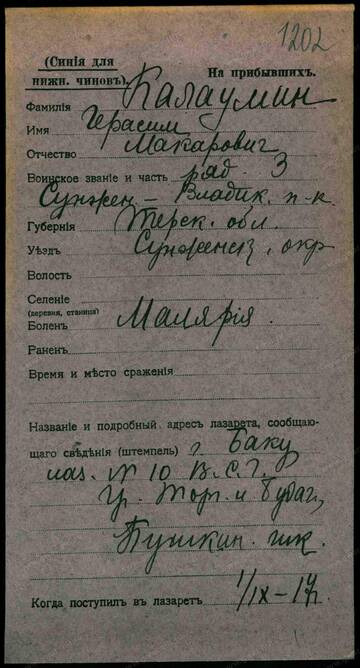 1202
(Синія для
нижн. чиновъ). На прибывшихъ.
Фамилія Калаумин
Имя Герасим
Отчество Макарович
Воинское званіе и часть ряд. 3
Сунжен - Владик. п-к.
Губернія Терск. обл.
Уѣздъ Сунженск. окр
Волость
Селеніе
(деревня, станица)
Боленъ Малярія.
Раненъ
Время и мѣсто сраженія
Названіе и подробный адресъ лазарета, сообщаю-
щаго свѣдѣнія (штемпель) г. Баку
лаз. № 10 В.С.Г.
гр. Торг. и
Пушкин.
Когда поступил въ лазаретъ 1/IX-17г.